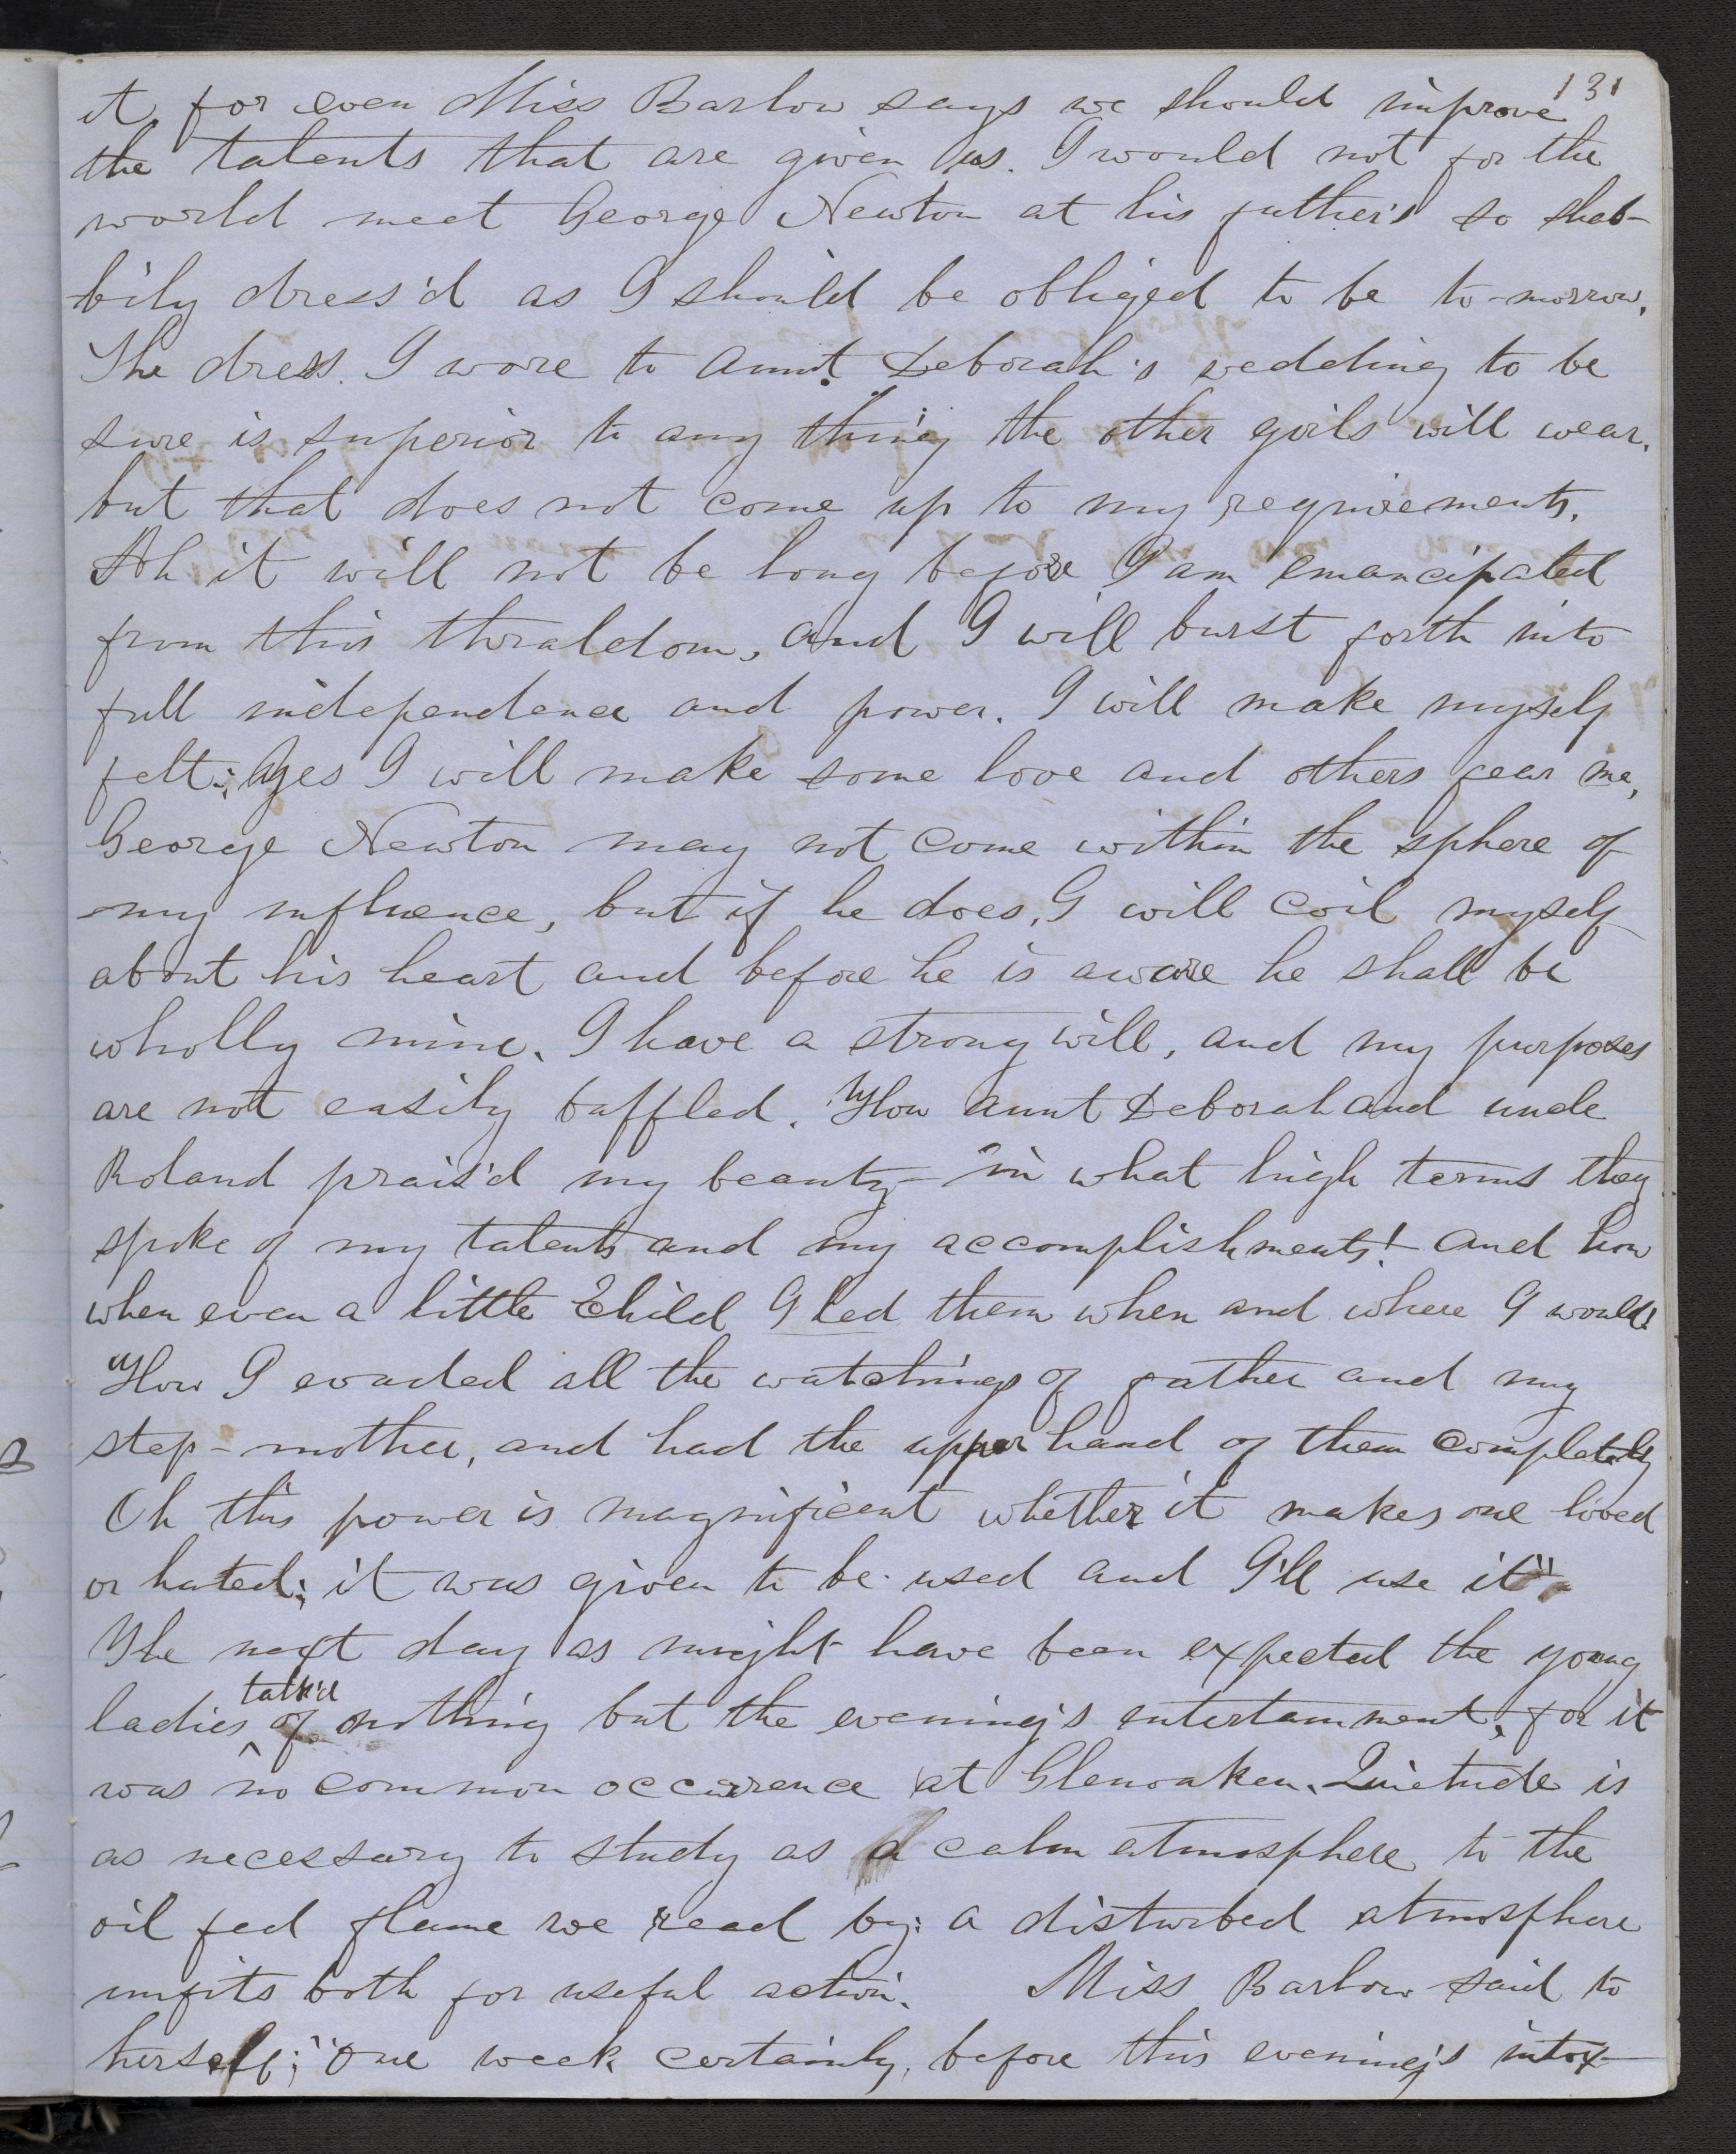 131
it for even Miss Barlow says we should improve
the talents that are given us. I would not for the
world meet George Newton at his father's so shab-
bily dress'd as I should be obliged to be to-morrow.
The dress I wore to aunt Deborah's wedding to be
sure is superior to any thing the other girls will wear.
but that does not come up to my requirements.
Ah it will not be long before I am emancipated
from this thraldom, and I will burst forth into
full independence and power. I will make myself
felt; yes I will make some love and others fear me,
George Newton may not come within the sphere of
my influence, but if he does, I will coil myself
about his heart and before he is aware he shall be
wholly mine. I have a strong will, and my purposes
are not easily baffled. "How aunt Deborah and uncle
Roland prais'd my beauty - in what high terms they
spoke of my talents and my accomplishments! and how
when even a little child I led them when and where I would!
"How I evaded all the watchings of father and my
step-mother, and had the upper hand of them completely
Oh this power is magnificent whether it makes one loved
or hated; it was given to be used and I'll use it"
The next day as might have been expected the young
ladies talk'd of nothing but the evening's entertainment, for it
was no common occurrence at Glenoaken. Quietude is
as necessary to study as a calm atmosphere to the
oil fed flame we read by: a disturbed atmosphere
unfits both for useful action. Miss Barlow said to
herself; "One week certainly, before this evening's intox-